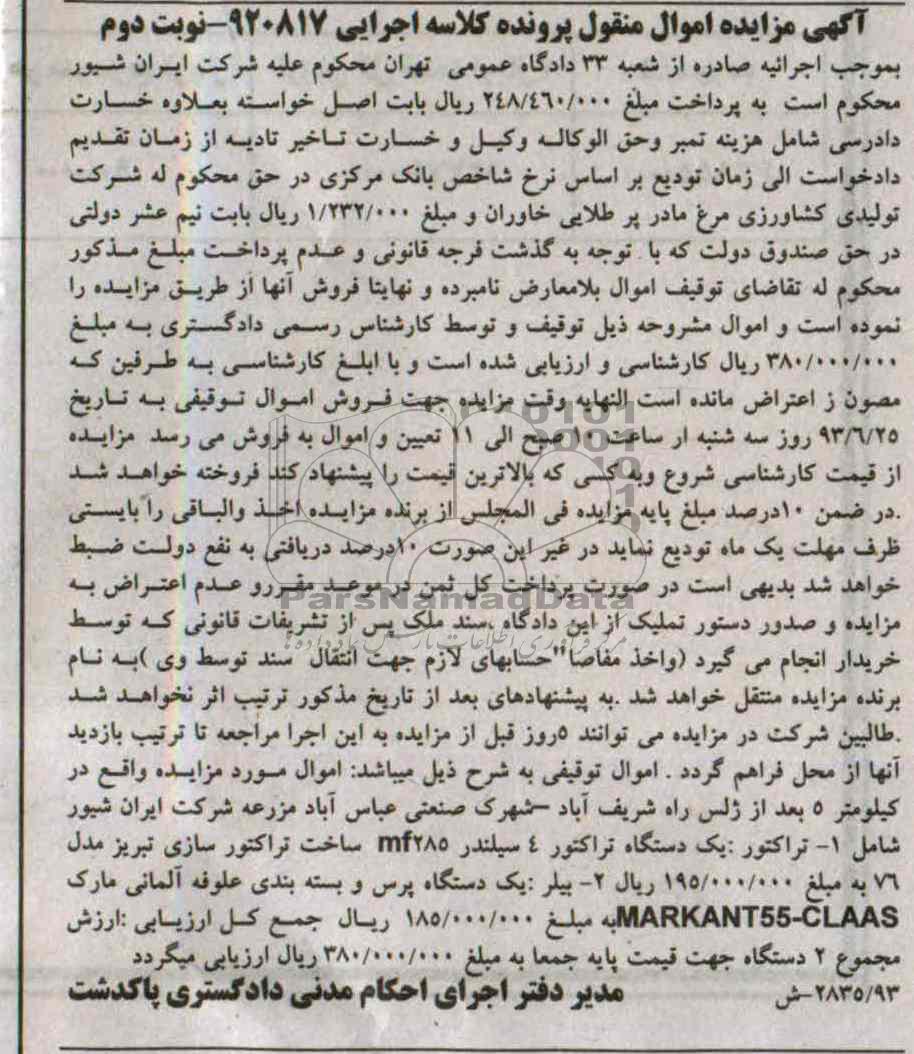 آگهی مزایده اموال منقول پرونده کلاسه اجرایی ۹۲۰۸۱۷-نوبت دوم
بموجب اجرائیه صادره از شعبه ۳۳ دادگاه عمومی تهران محکوم علیه شرکت ایران شیور
محکوم است به پرداخت مبلغ ۲۴۸/۴۶۰/۰۰۰ ریال بابت اصل خواسته بعلاوه خسارت
دادرسی شامل هزینه تمبر وحق الوکاله وکیل و خسارت تاخیر تادیه از زمان تقدیم
دادخواست الی زمان تودیع بر اساس نرخ شاخص بانک مرکزی در حق محکوم له شرکت
تولیدی کشاورزی مرغ مادر پر طلایی خاوران و مبلغ ۱/۲۳۲/۰۰۰ ریال بابت نیم عشر دولتی
در حق صندوق دولت که با توجه به گذشت فرجه قانونی و عدم پرداخت مبلغ مذکور
محکوم له تقاضای توقیف اموال بلامعارض نامبرده و نهایتا فروش آنها از طریق مزایده را
نموده است و اموال مشروحه ذیل توقیف و توسط کارشناس رسمی دادگستری به مبلغ
۳۸۰/۰۰۰/۰۰۰ ریال کارشناسی و ارزیابی شده است و با ابلغ کارشناسی به طرفین که
مصون ز اعتراض مانده است النهایه وقت مزایده جهت فروش اموال توقیفی به تاریخ
۹۳/۶/۲۵ روز سه شنبه ار ساعت ۱۰ صبح الی ۱۱ تعیین و اموال به فروش می رسد مزایده
از قیمت کارشناسی شروع وبه کسی که بالاترین قیمت را پیشنهاد کند فروخته خواهد شد
.در ضمن ۱۰درصد مبلغ پایه مزایده فی المجلس از برنده مزایده اخذ والباقی را بایستی
ظرف مهلت یک ماه تودیع نماید در غیر این صورت ۱۰درصد دریافتی به نفع دولت ضبط
خواهد شد بدیهی است در صورت پرداخت کل ثمن در موعد مقررو عدم اعتراض به
ParsNamadData
مزایده و صدور دستور تملیک از این دادگاه ،سند ملک پس از تشریفات قانونی که توسط
خریدار انجام می گیرد (واخذ مفاصا"حسابهای لازم جهت انتقال سند توسط وی )به نام
برنده مزایده منتقل خواهد شد .به پیشنهادهای بعد از تاریخ مذکور ترتیب اثر نخواهد شد
.طالبین شرکت در مزایده می توانند ۵روز قبل از مزایده به این اجرا مراجعه تا ترتیب بازدید
آنها از محل فراهم گردد . اموال توقیفی به شرح ذیل میباشد: اموال مورد مزایده واقع در
کیلومتر ۵ بعد از ژلس راه شریف آباد –شهرک صنعتی عباس آباد مزرعه شرکت ایران شیور
شامل ۱- تراکتور :یک دستگاه تراکتور ٤ سیلندر mf۲۸۵ ساخت تراکتور سازی تبریز مدل
۷۶ به مبلغ ۱۹۵/۰۰۰/۰۰۰ ریال ۲- بیلر :یک دستگاه پرس و بسته بندی علوفه آلمانی مارک
MARKANT55-CLAASبه مبلغ ۱۸۵/۰۰۰/۰۰۰ ریال جمع کل ارزیابی :ارزش
مجموع ۲ دستگاه جهت قیمت پایه جمعا به مبلغ ۳۸۰/۰۰۰/۰۰۰ ریال ارزیابی میگردد
۲۸۳۵/۹۳-ش مدیر دفتر اجرای احکام مدنی دادگستری پاکدشت